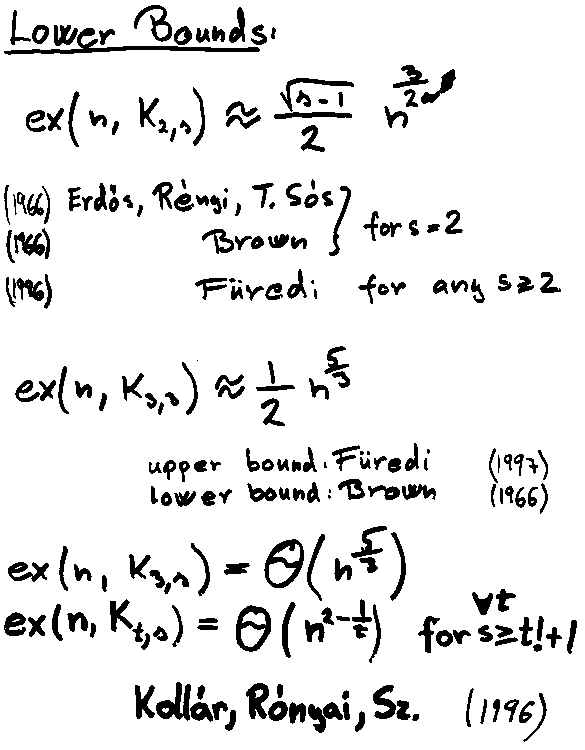 Lower Bounds:
ex(n, K_{2,s}) ≈ \frac{\sqrt{s-1}}{2} n^{\frac{3}{2}}
(1966) Erdős, Rényi, T. Sós } for s=2
(1966) Brown
(1996) Füredi for any s≥2
ex(n, K_{3,3}) ≈ \frac{1}{2} n^{\frac{5}{3}}
upper bound: Füredi (1997)
lower bound: Brown (1966)
ex(n, K_{3,s}) = Θ(n^{\frac{5}{3}})
ex(n, K_{t,s}) = Θ(n^{2-\frac{1}{t}}) for s≥t!+1 ∀t
Kollár, Rónyai, Sz. (1996)